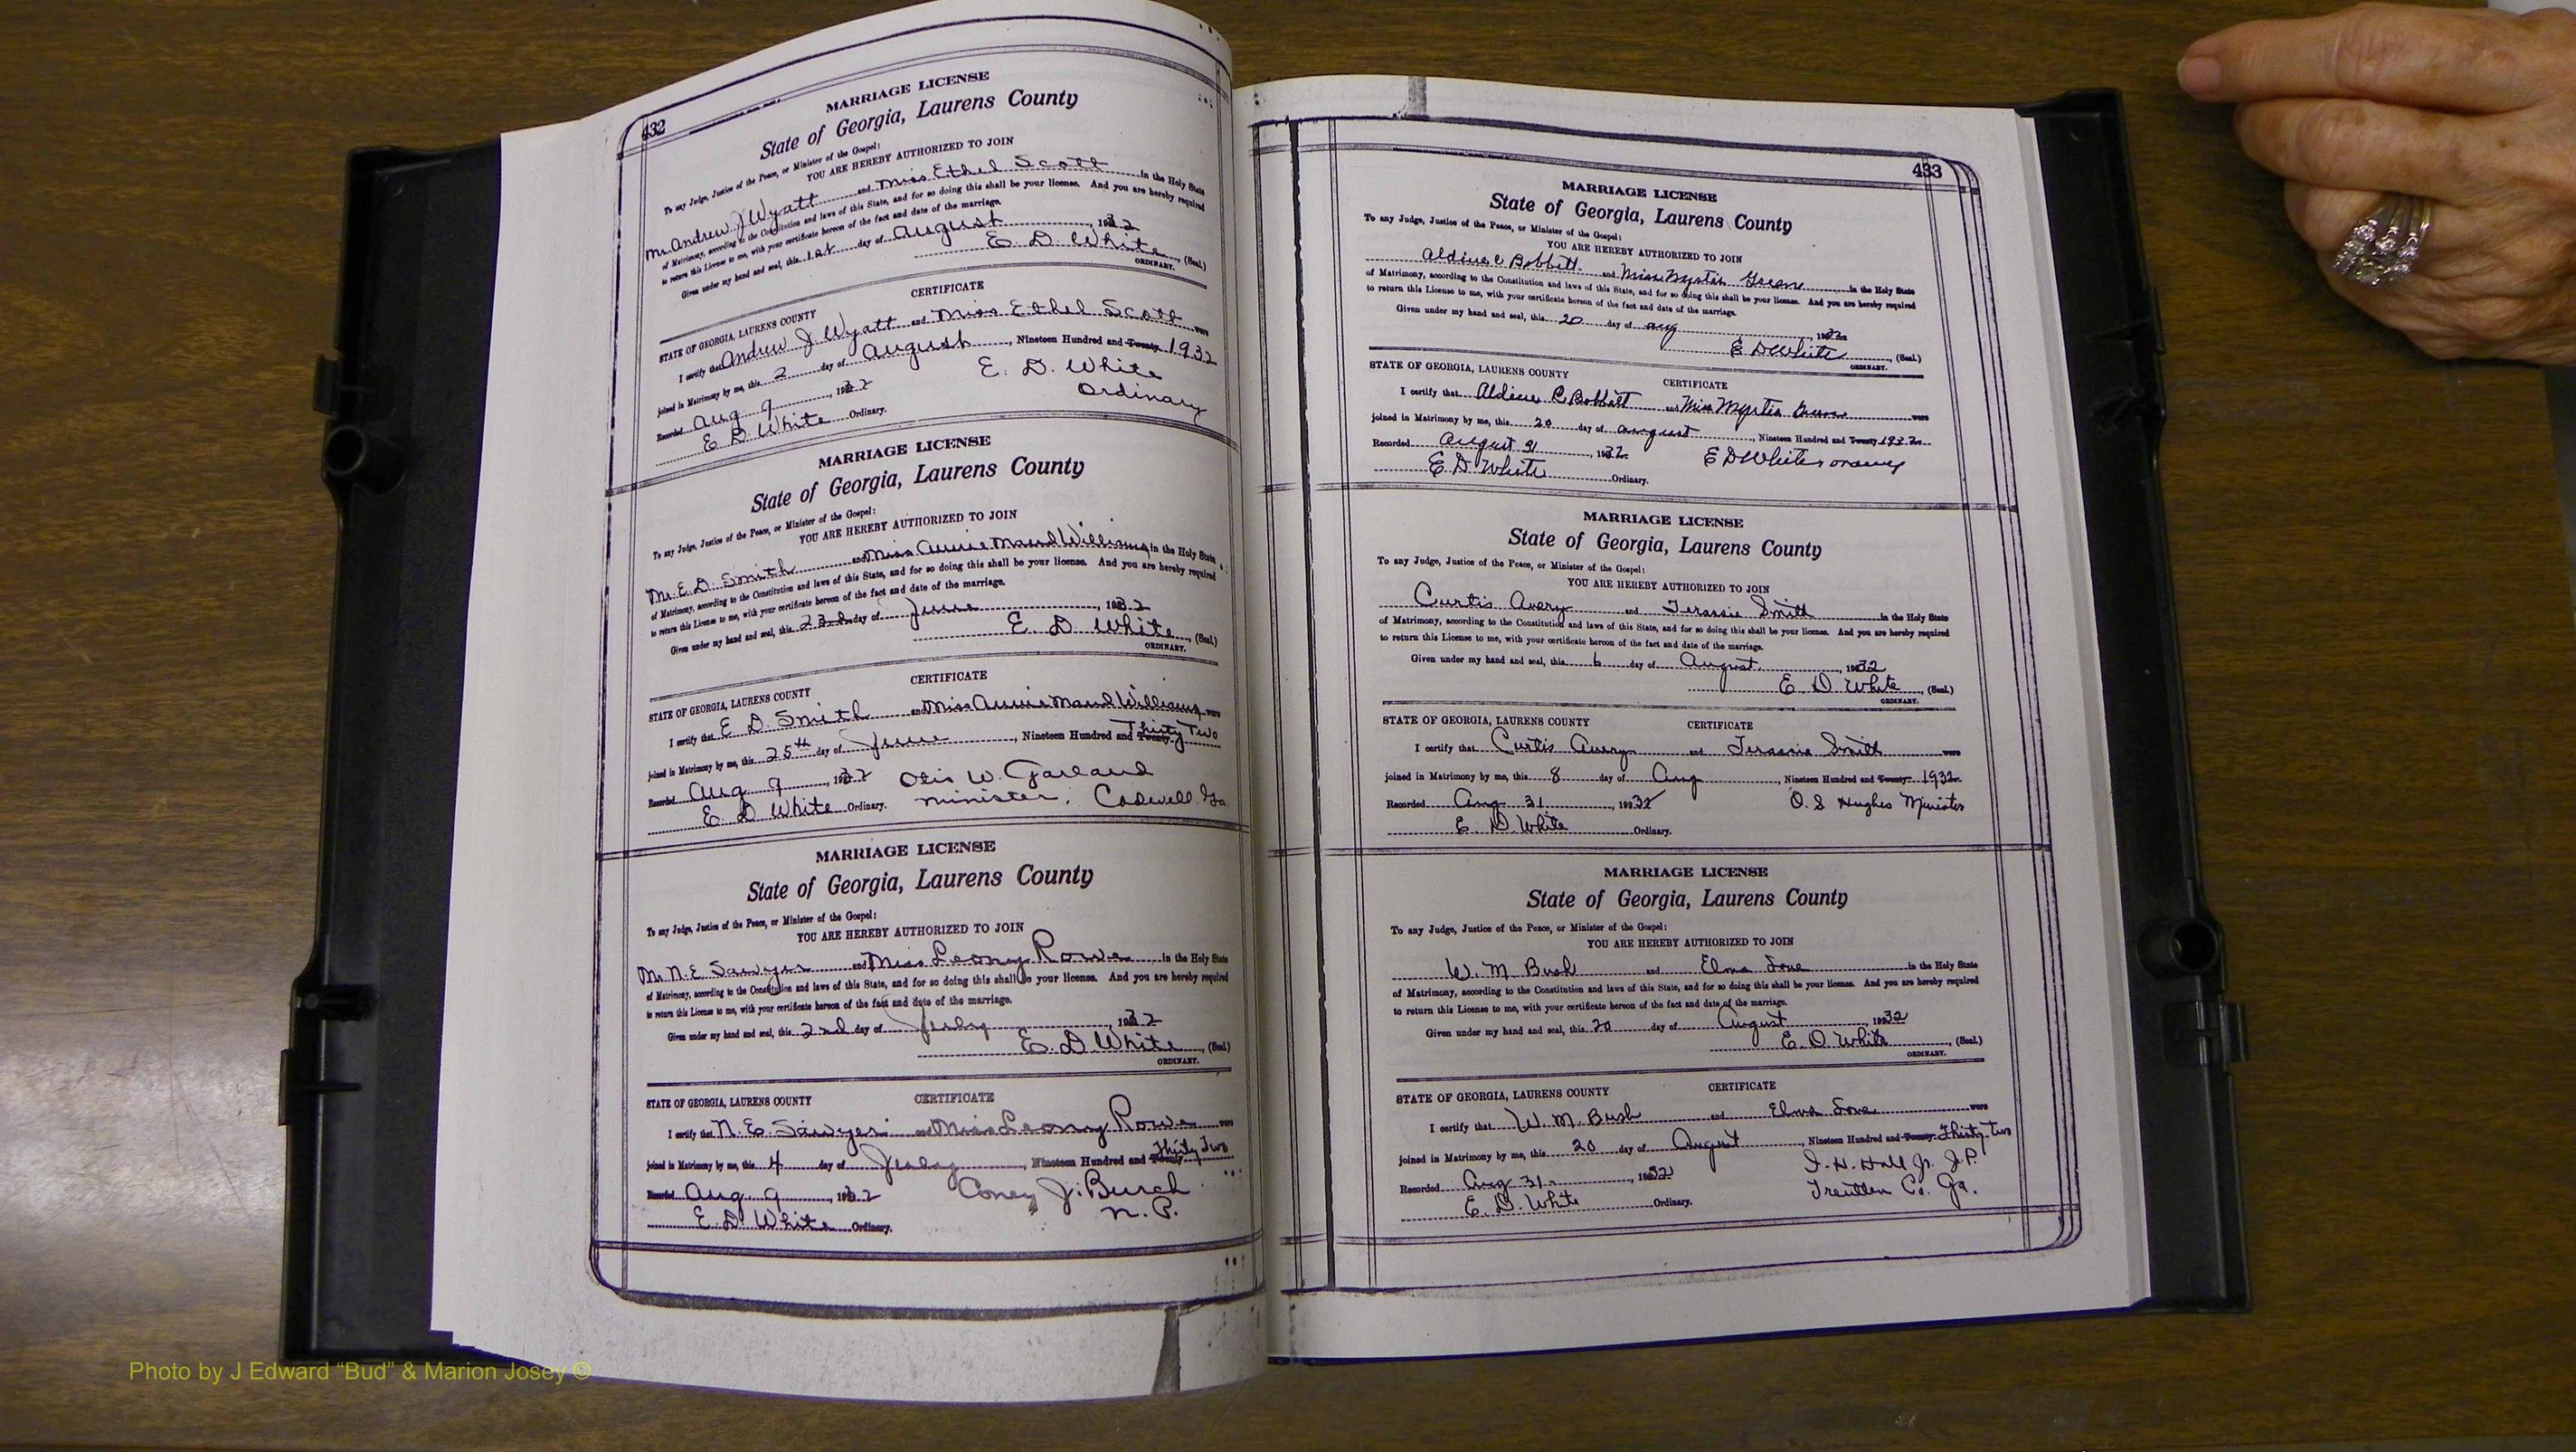 432
MARRIAGE LICENSE
State of Georgia, Laurens County
To any Judge, Justice of the Peace, or Minister of the Gospel:
YOU ARE HEREBY AUTHORIZED TO JOIN
Mr Andrew J Wyatt and Miss Ethel Scott in the Holy State
of Matrimony, according to the Constitution and laws of this State, and for so doing this shall be your license. And you are hereby required
to return this License to me, with your certificate hereon of the fact and date of the marriage.
Given under my hand and seal, this 1st day of August, 1932
E. D. White, (Seal)
ORDINARY.
CERTIFICATE
STATE OF GEORGIA, LAURENS COUNTY
I certify that Andrew J Wyatt and Miss Ethel Scott were
joined in Matrimony by me, this 2 day of August, Nineteen Hundred and Twenty 1932
Recorded Aug 9, 1932 E. D. White
E. D. White Ordinary. Ordinary
MARRIAGE LICENSE
State of Georgia, Laurens County
To any Judge, Justice of the Peace, or Minister of the Gospel:
YOU ARE HEREBY AUTHORIZED TO JOIN
Mr. E. D. Smith and Miss Annie Maud Williams in the Holy State
of Matrimony, according to the Constitution and laws of this State, and for so doing this shall be your license. And you are hereby required
to return this License to me, with your certificate hereon of the fact and date of the marriage.
Given under my hand and seal, this 23rd day of June, 1932
E. D. White, (Seal)
ORDINARY.
CERTIFICATE
STATE OF GEORGIA, LAURENS COUNTY
I certify that E. D. Smith and Miss Annie Maud Williams were
joined in Matrimony by me, this 25th day of June, Nineteen Hundred and Twenty Thirty Two
Recorded Aug 9, 1932 Otis W. Garland
E. D White Ordinary. minister, Cadwell Ga
MARRIAGE LICENSE
State of Georgia, Laurens County
To any Judge, Justice of the Peace, or Minister of the Gospel:
YOU ARE HEREBY AUTHORIZED TO JOIN
Mr. N. E. Sawyer and Miss Leony Rowe in the Holy State
of Matrimony, according to the Constitution and laws of this State, and for so doing this shall be your license. And you are hereby required
to return this License to me, with your certificate hereon of the fact and date of the marriage.
Given under my hand and seal, this 2nd day of July, 1932
E. D. White, (Seal)
ORDINARY.
STATE OF GEORGIA, LAURENS COUNTY CERTIFICATE
I certify that N. E. Sawyer and Miss Leony Rowe were
joined in Matrimony by me, this 4 day of July, Nineteen Hundred and Twenty Thirty Two
Recorded Aug. 9, 1932 Coney J. Burch
E. D. White Ordinary. N. P.
433
MARRIAGE LICENSE
State of Georgia, Laurens County
To any Judge, Justice of the Peace, or Minister of the Gospel:
YOU ARE HEREBY AUTHORIZED TO JOIN
Aldine C Bobbitt and Miss Myrtis Greene in the Holy State
of Matrimony, according to the Constitution and laws of this State, and for so doing this shall be your license. And you are hereby required
to return this License to me, with your certificate hereon of the fact and date of the marriage.
Given under my hand and seal, this 20 day of Aug, 1932
E D White, (Seal)
ORDINARY.
STATE OF GEORGIA, LAURENS COUNTY CERTIFICATE
I certify that Aldine C Bobbitt and Miss Myrtis were
joined in Matrimony by me, this 20 day of August, Nineteen Hundred and Twenty 1932
Recorded August 31, 1932 E D White
E D White Ordinary.
MARRIAGE LICENSE
State of Georgia, Laurens County
To any Judge, Justice of the Peace, or Minister of the Gospel:
YOU ARE HEREBY AUTHORIZED TO JOIN
Curtis Avery and Smith in the Holy State
of Matrimony, according to the Constitution and laws of this State, and for so doing this shall be your license. And you are hereby required
to return this License to me, with your certificate hereon of the fact and date of the marriage.
Given under my hand and seal, this 6 day of August, 1932
E. D. White, (Seal)
ORDINARY.
STATE OF GEORGIA, LAURENS COUNTY CERTIFICATE
I certify that Curtis Avery and Smith were
joined in Matrimony by me, this 8 day of Aug, Nineteen Hundred and Twenty 1932
Recorded Aug 31, 1932 O. S Hughes Minister
E. D. White Ordinary.
MARRIAGE LICENSE
State of Georgia, Laurens County
To any Judge, Justice of the Peace, or Minister of the Gospel:
YOU ARE HEREBY AUTHORIZED TO JOIN
W. M. Bush and Elma in the Holy State
of Matrimony, according to the Constitution and laws of this State, and for so doing this shall be your license. And you are hereby required
to return this License to me, with your certificate hereon of the fact and date of the marriage.
Given under my hand and seal, this 20 day of August, 1932
E. D. White, (Seal)
ORDINARY.
STATE OF GEORGIA, LAURENS COUNTY CERTIFICATE
I certify that W. M. Bush and Elma were
joined in Matrimony by me, this 20 day of August, Nineteen Hundred and Twenty Thirty two
Recorded Aug 31, 1932 I. H. Hall Jr. J. P.
E. D. White Ordinary. Treutlen Co. Ga.
Photo by J Edward “Bud” & Marion Josey ©